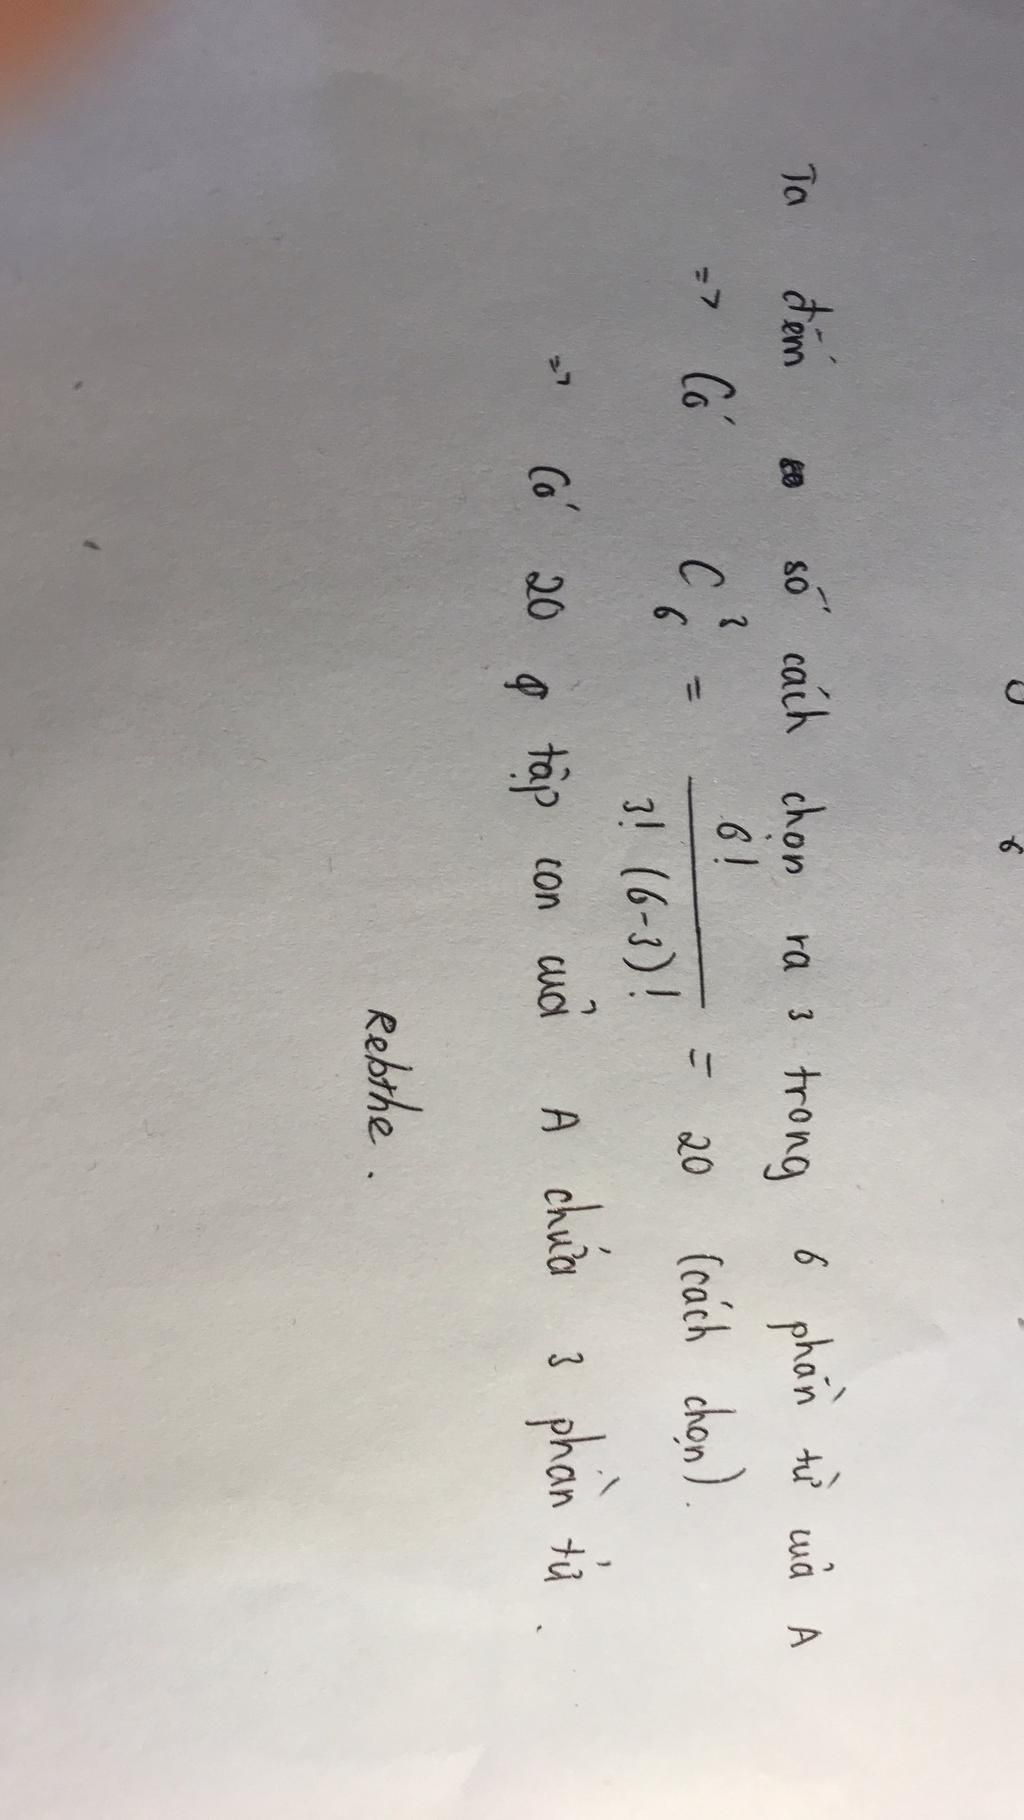 Ta đếm số cách chọn ra 3 trong 6 phần tử của A
=> Có C₆³ = 6! / 3! (6-3)! = 20 (cách chọn).
=> Có 20 tập con của A chứa 3 phần tử.
Rebthe.